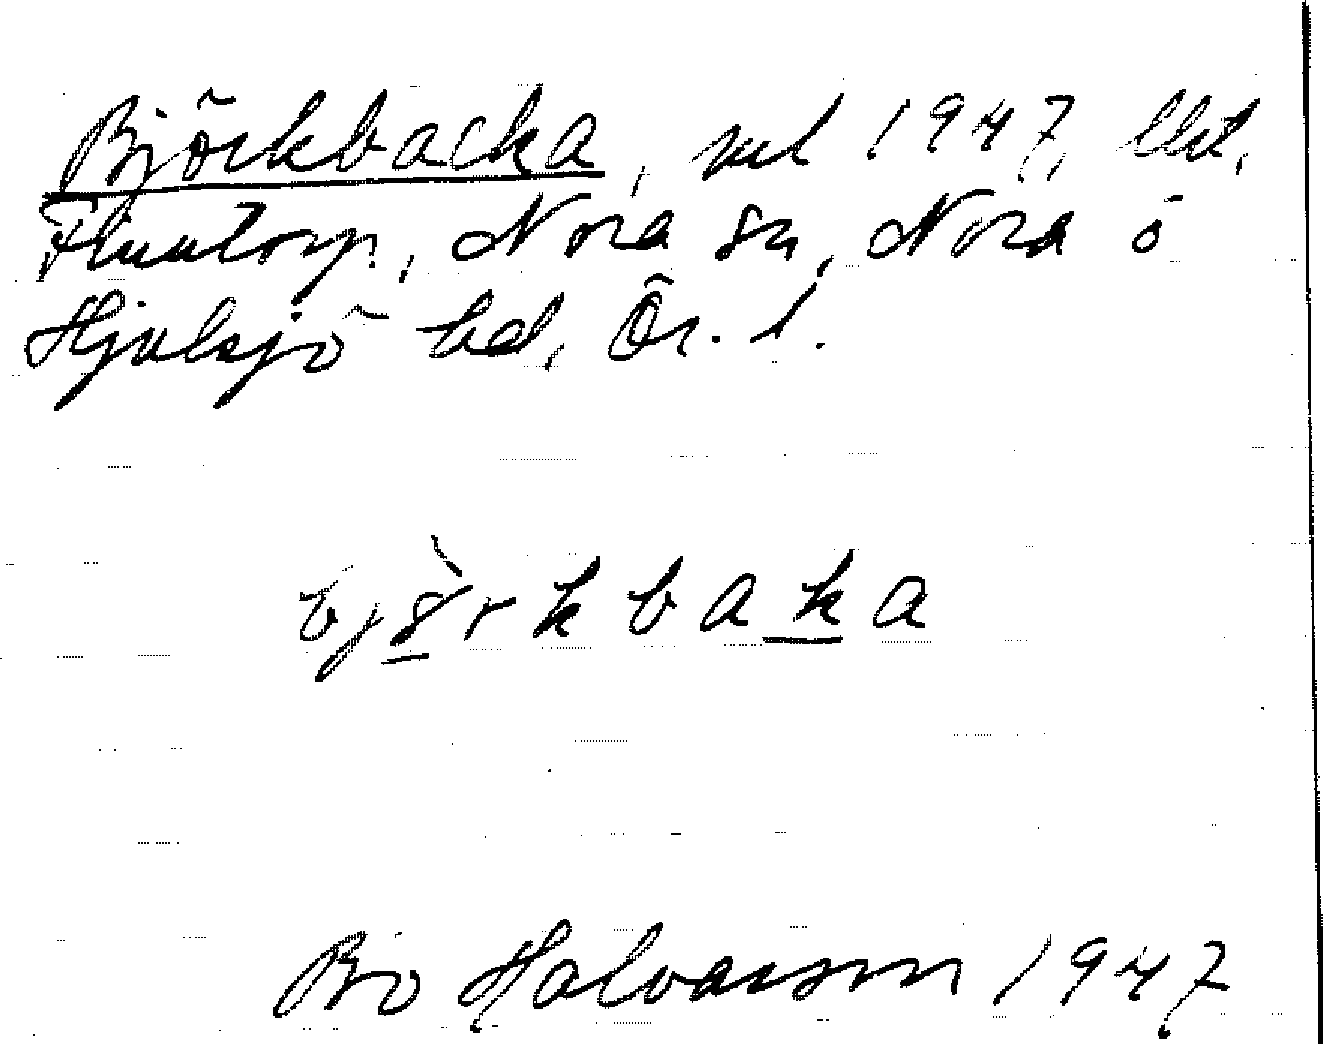 Björkbacka, vid 1947, lht,
Fluutorp, Nora sn, Nora o
Hjulsjö hd, Ör. l.
bjö̀rkbaka
Bo Halvarsson 1947